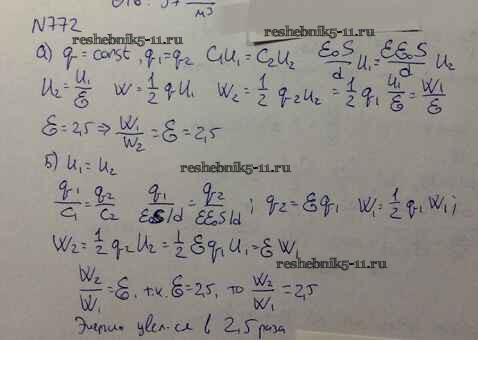 м³
N772
reshebnik5-11.ru
а) q = const, q₁ = q₂ C₁U₁ = C₂U₂ ε₀S/d U₁ = εε₀S/d U₂
U₂ = U₁/ε W = 1/2 q U₁ W₂ = 1/2 q₂U₂ = 1/2 q₁ U₁/ε = W₁/ε
ε = 2,5 ⇒ W₁/W₂ = ε = 2,5
reshebnik5-11.ru
Б) U₁ = U₂
q₁/C₁ = q₂/C₂ q₁/ε₀S/d = q₂/εε₀S/d ; q₂ = εq₁ W₁ = 1/2 q₁ W₁;
W₂ = 1/2 q₂ U₂ = 1/2 εq₁U₁ = εW₁
reshebnik5-11.ru
W₂/W₁ = ε, т.к. ε = 2,5, то W₂/W₁ = 2,5
Энергия увел-ся в 2,5 раза